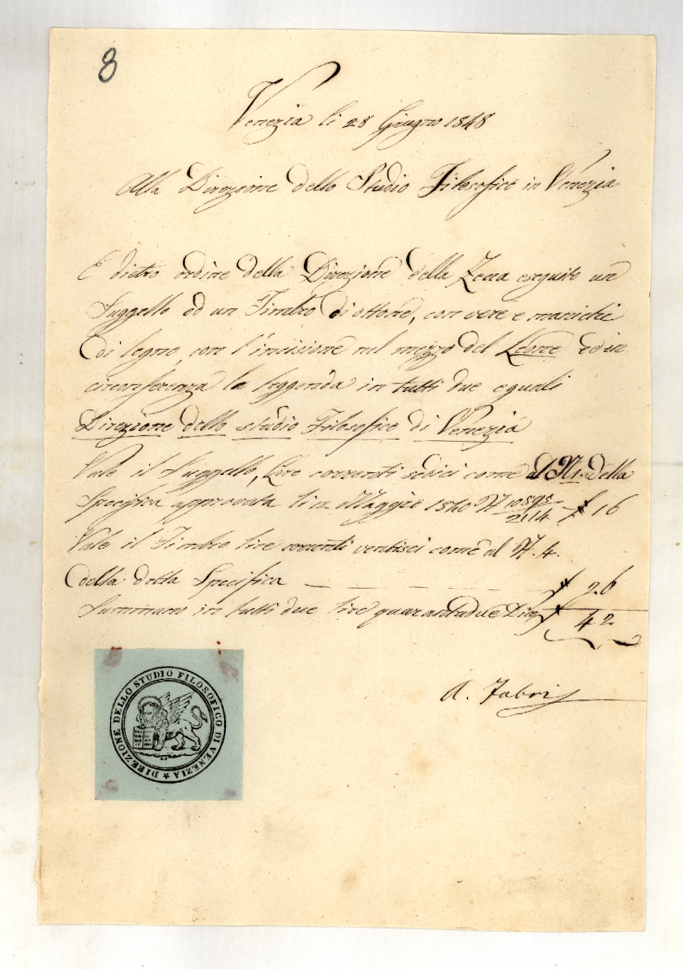 8
Venezia li 28 Giugno 1848
Alla Direzione dello Studio Filosofico in Venezia
È dietro ordine della Direzione della Zecca eseguito un
Suggello ed un Timbro di ottone, con vere e manichi
di legno con l'incisione nel mezzo del Leone ed in
circonferenza la leggenda in tutti due eguali
Direzione dello studio Filosofico di Venezia
Vale il Suggello, lire correnti sedici come al N.1. della
Specifica approvata li 12 Maggio 1840 N 10595/2114 £ 16
Vale il Timbro lire correnti ventisei come al N. 4.
della detta Specifica £ 26
Summano in tutti due lire quarantadue £ 42
A. Fabris
DIREZIONE DELLO STUDIO FILOSOFICO DI VENEZIA